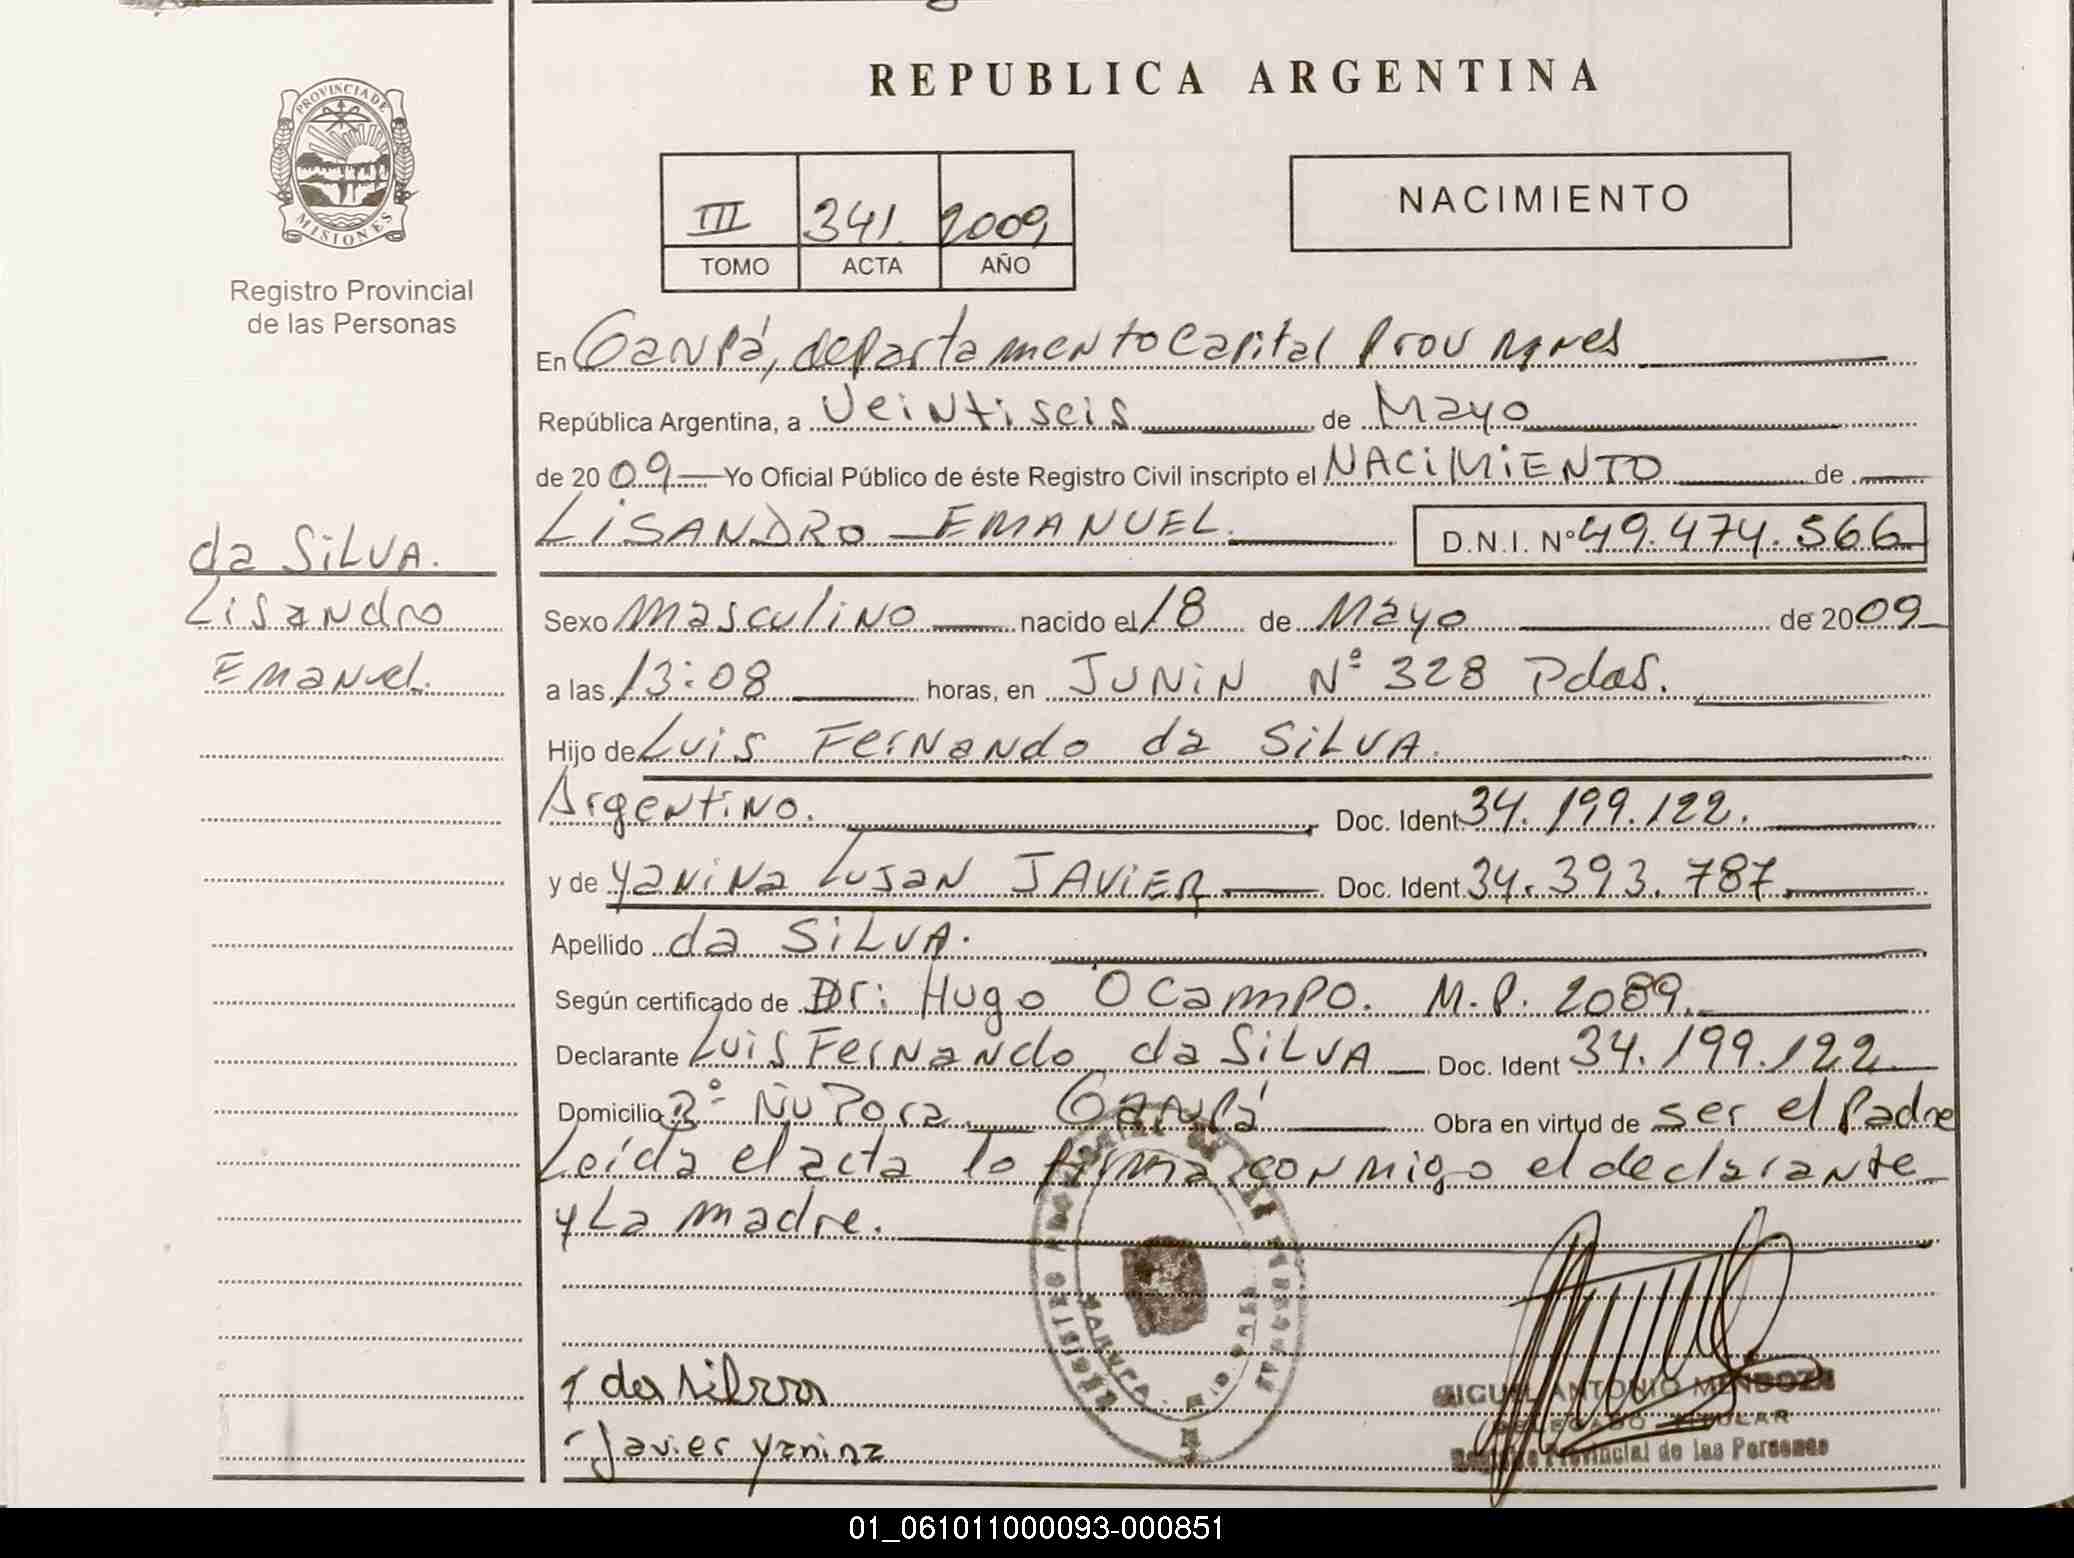 REPUBLICA ARGENTINA
PROVINCIA DE
MISIONES
Registro Provincial
de las Personas
III 341. 2009
TOMO ACTA AÑO
NACIMIENTO
En Garupá, departamento Capital Prov Mnes
República Argentina, a Veintiseis de Mayo
de 2009 Yo Oficial Público de éste Registro Civil inscripto el NACIMIENTO de
LISANDRO EMANUEL. D.N.I. Nº 49.474.566
da SILVA.
Lisandro
Emanuel.
Sexo Masculino nacido el 18 de Mayo de 2009
a las 13:08 horas, en JUNIN Nº 328 Pdas.
Hijo de Luis Fernando da SILVA.
Argentino. Doc. Ident. 34.199.122.
y de Yanina Lujan JAVIER Doc. Ident. 34.393.787.
Apellido da SILVA.
Según certificado de Dr: Hugo Ocampo. M.P. 2089.
Declarante Luis Fernando da SILVA Doc. Ident 34.199.122
Domicilio Bº Ñu Pora Garupá Obra en virtud de ser el Padre
Leída el acta lo firma conmigo el declarante
y La madre.
da Silva
Javier Yanina
MIGUEL ANTONIO MENDOZA
DELEGADO TITULAR
Registro Provincial de las Personas
01_061011000093-000851